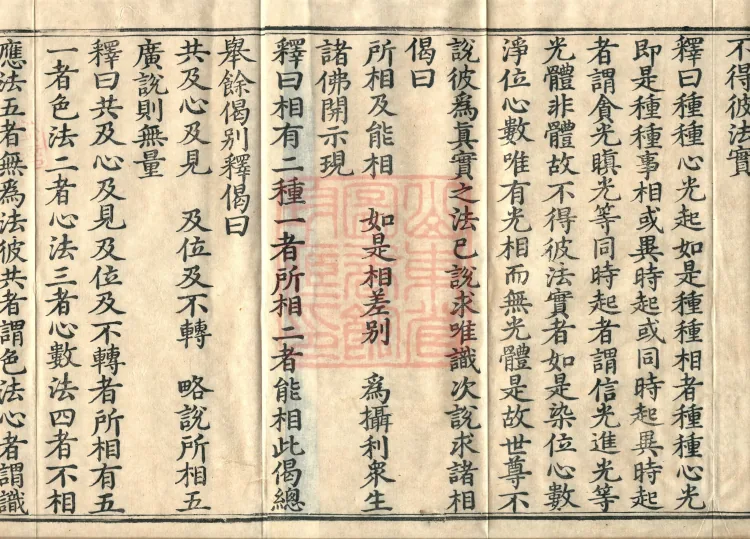 不得彼法實
釋曰種種心光起如是種種相者種種心光
即是種種事相或異時起或同時起異時起
者謂貪光瞋光等同時起者謂信光進光等
光體非體故不得彼法實者如是染位心數
淨位心數唯有光相而無光體是故世尊不
說彼爲真實之法已說求唯識次說求諸相
偈曰
所相及能相 如是相差別 爲攝利衆生
諸佛開示現
釋曰相有二種一者所相二者能相此偈總
舉餘偈別釋偈曰
共及心及見 及位及不轉 略說所相五
廣說則無量
釋曰共及心及見及位及不轉者所相有五
一者色法二者心法三者心數法四者不相
應法五者無爲法彼共者謂色法心者謂識